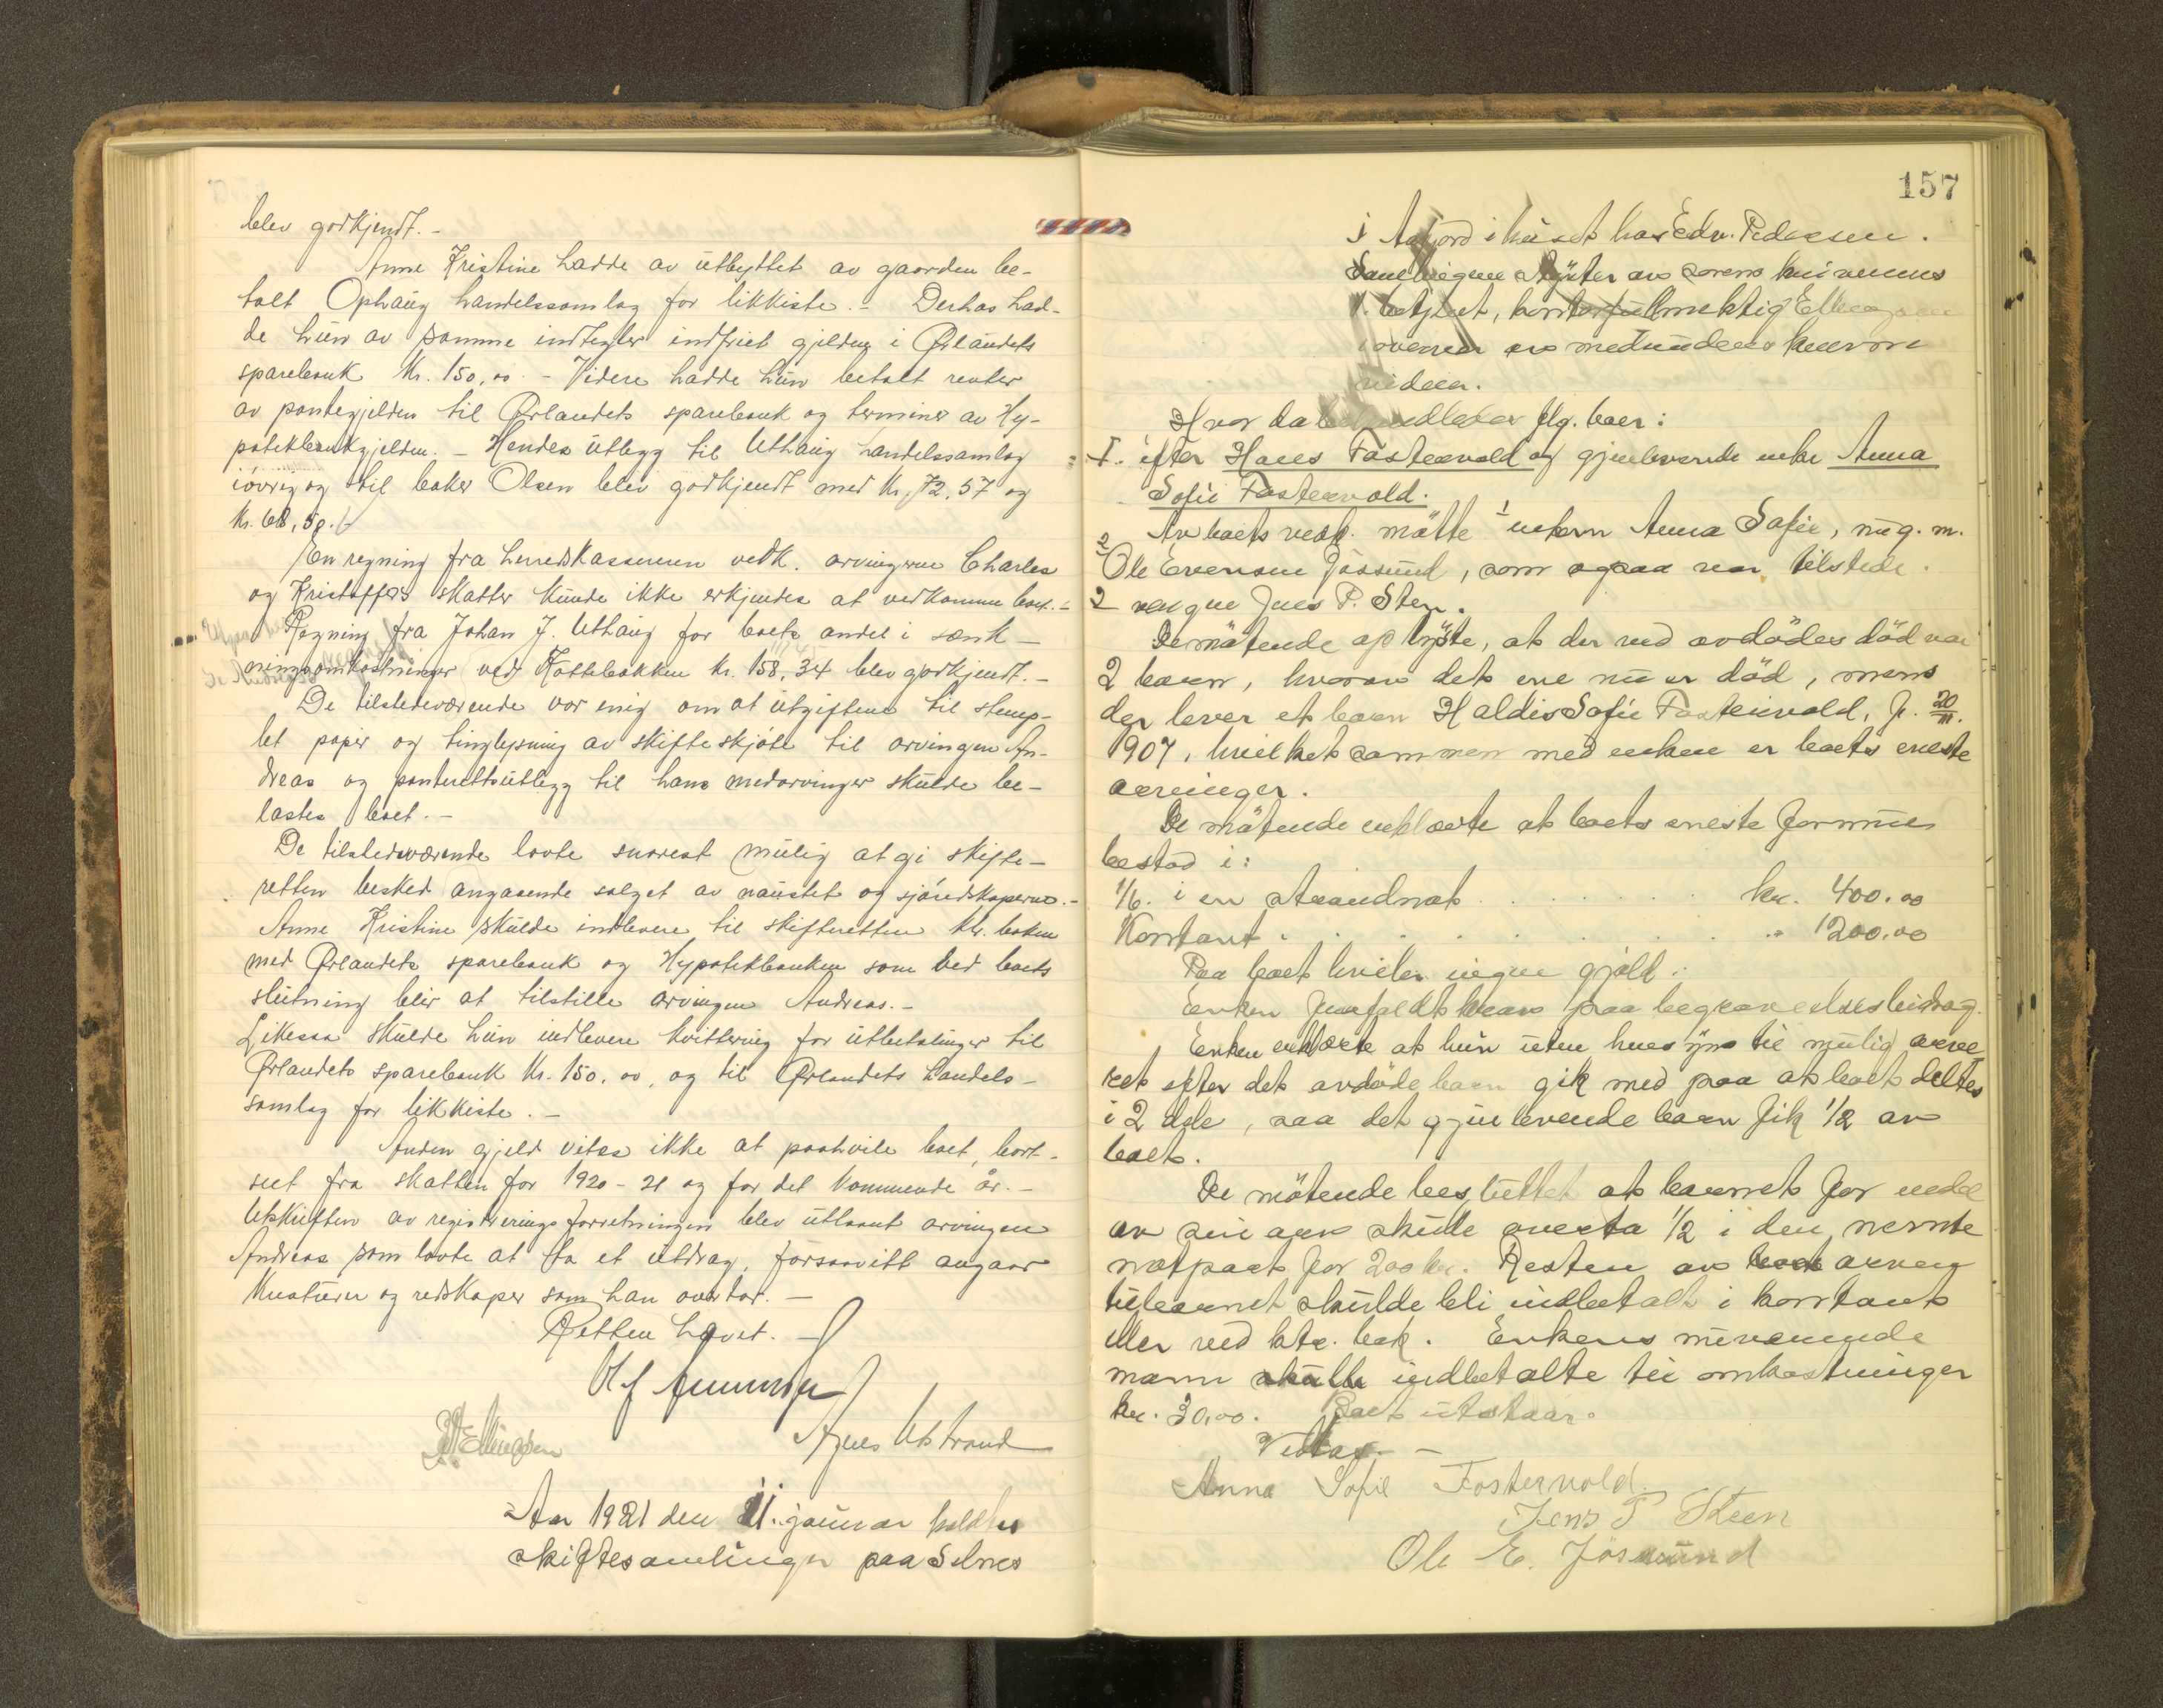 blev godkjendt. -
Anne Kristine hadde av utbyttet av gaarden be-
talt Ophaug handelssamlag for likkiste. - Derhos had-
de hun av samme indtegter indfriet gjelden i Ørlandets
sparebank Kr. 150,00. - Videre hadde hun betalt renter
av pantegjelden til Ørlandets sparebank og terminer av Hy-
potekbankgjelden. - Hendes utlegg til Uthaug handelssamlag
iøvrig og til baker Olsen blev godkjendt med Kr. 72,57 og
Kr. 68,58. -
En regning fra herredskassereren vedk. arvingerne Charles
og Kristoffers skatter kunde ikke erkjendes at vedkomme boet. -
Regning fra Johan J. Uthaug for boets andel i sænk-
ningsomkostninger ved Kottebakken kr. 158,34 blev godkjendt. -
De tilstedeværende var enig om at utgiftene til stemp-
let papir og tinglysning av skifteskjøte til arvingen An-
dreas og panterettsutlegg til hans medarvinger skulde be-
lastes boet. -
De tilstedeværende lovte snarest mulig at gi skifte-
retten besked angaaende salget av naustet og sjøredskaperne. -
Anne Kristine skulde indlevere til skifteretten ktr. boken
med Ørlandets sparebank og Hypotekbanken som ved boets
slutning blir at tilstille arvingen Andreas. -
Likesaa skulde hun indlevere kvittering for utbetalinger til
Ørlandets sparebank Kr. 150,00, og til Ørlandets handels-
samlag for likkiste. -
Anden gjeld vites ikke at paahvile boet, bort-
seet fra skatten for 1920-21 og for det kommende år. -
Utskriften av registreringsforretningen blev utlaant arvingen
Andreas som lovte at ta et utdrag, forsaavitt angaar
kreaturer og redskaper som han overtar. -
Retten hævet. -
Agnes Utstrand
Aar 1921 den 11. januar holdtes
skiftesamlinger paa Selnes
157
i Aafjord i huset hos Edv. Pedersen.
Samlingene styrtes av sorenskriverens
1. betjent, kontorfuldmektig
i overvær av medundersskrevne
vidner.
Hvor da behandledes flg. boer:
I. efter Hans Fastervold og gjenlevende enke Anna
Sofie Fastervold.
Av boets vedk. møtte 1 enken Anna Sofie, nug. m.
2 Ole Evensen Jøssund, som ogsaa var tilstede.
2 verge Jens P. Sten.
De møtende oplyste, at der ved avdødes død var
2 barn, hvorav det ene nu er død, mens
der lever et barn Haldis Sofie Fastervold, f. 20/III.
1907, hvilket sammen med enken er boets eneste
arvinger.
De møtende erklærte at boets eneste formue
bestod i:
1/6. i en strandnot . . . . . kr. 400.00
Kontant . . . . . . . " 1200.00
Paa boet hviler ingen gjæld.
Enken frafaldt krav paa begravelsesbidrag.
Enken erklærte at hun uten hensyn til mulig arve
ret efter det avdøde barn gik med paa at boet deltes
i 2 dele, saa det gjenlevende barn fik 1/2 av
boet.
De møtende besluttet at barnet for endel
av sin arv skulle overta 1/2 i den nevnte
notpart for 200 kr. Resten av arven
til barnet skulde bli indbetalt i kontant
eller ved ktr. bok. Enkens nuværende
mann skulle indbetalte til omkostninger
kr. 30,00. Boet utstaar.
Vedtas. -
Anna Sofie Fostervold.
Jens P Steen
Ole E. Jössund